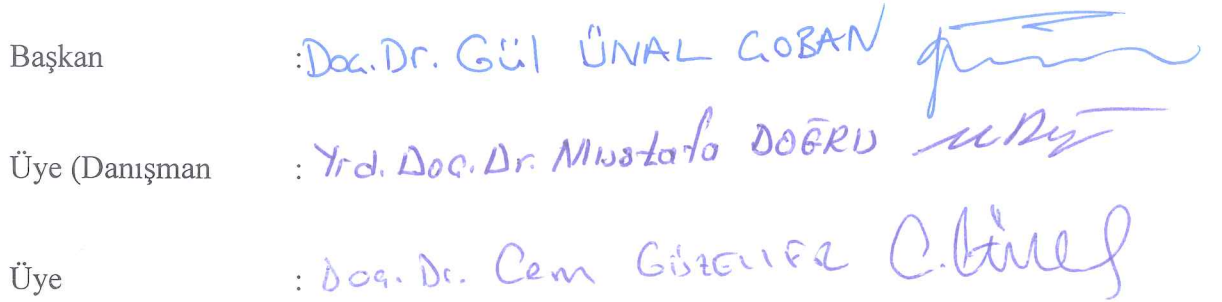 Başkan :Doç.Dr. Gül ÜNAL ÇOBAN
Üye (Danışman : Yrd. Doç.Dr. Mustafa DOĞRU
Üye : Doç. Dr. Cem GÜZELLER